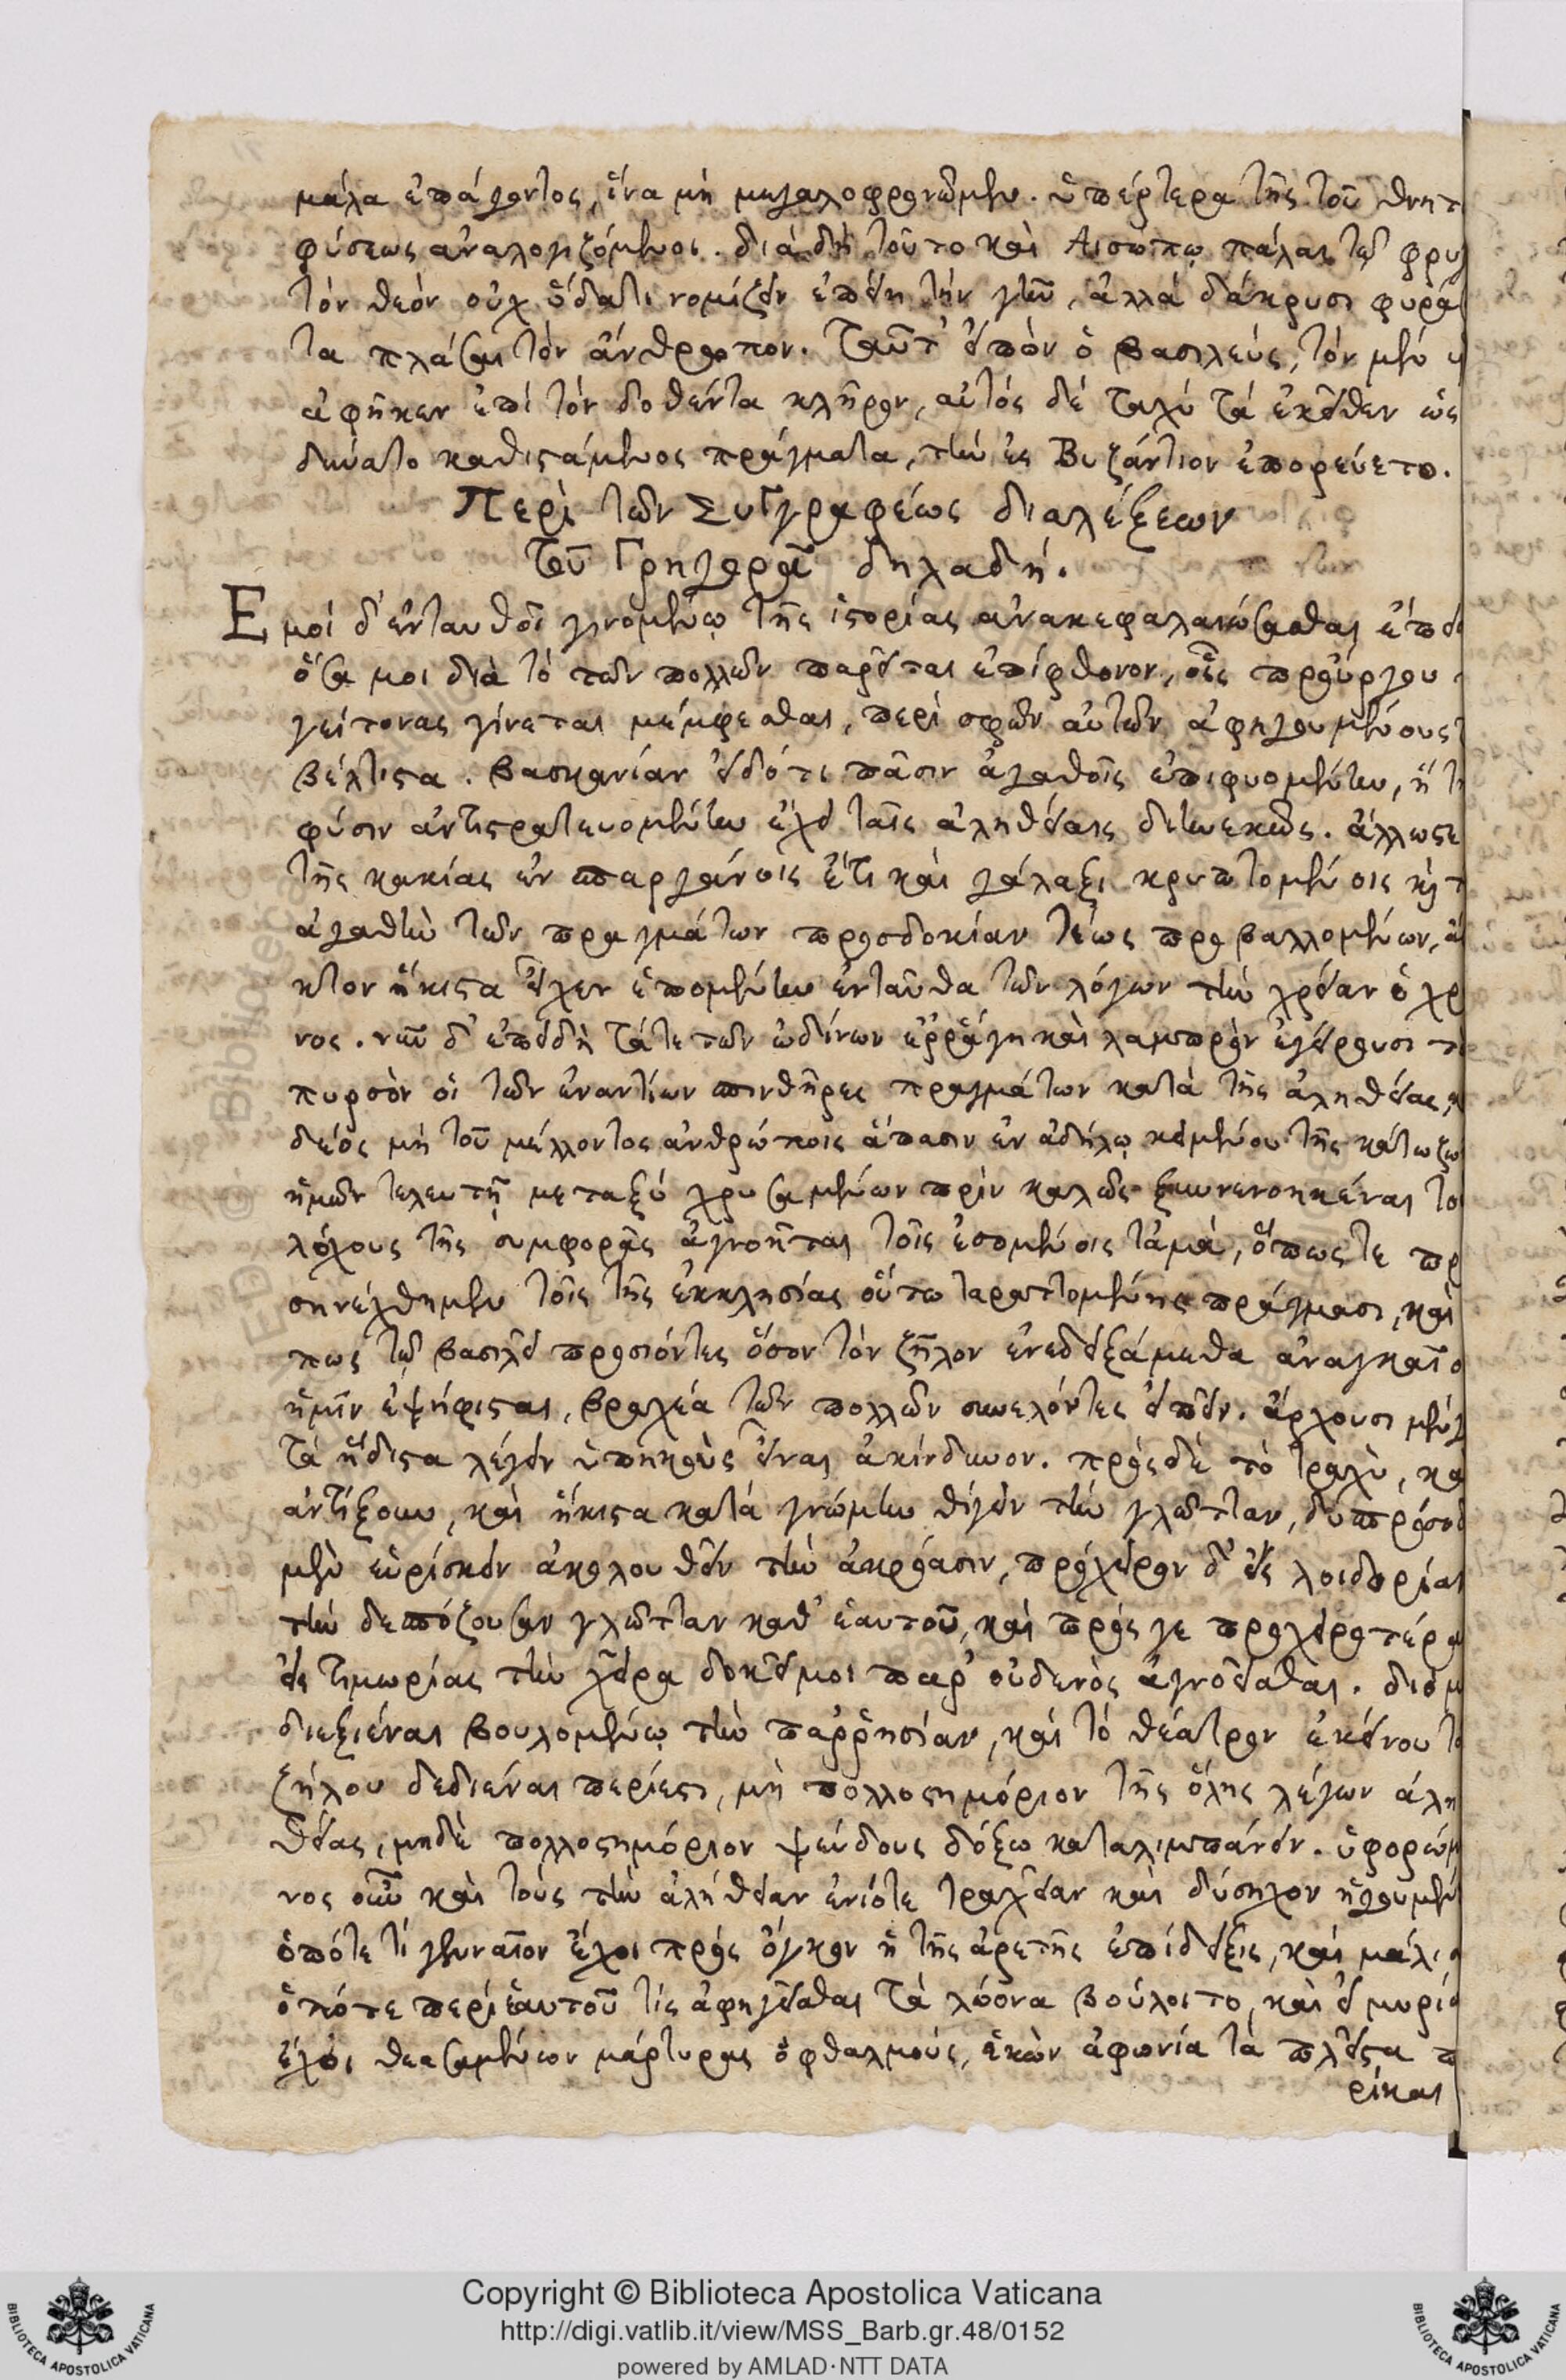 μάλα ἐπάγοντος, ἵνα μὴ μεγαλοφρονῶμεν. ὑπέρτερα τῆς τοῦ θνητ
φύσεως ἀναλογιζόμενοι. διὰ δὴ τοῦτο καὶ Αἰσώπῳ πάλαι τῷ φρυγ
τὸν θεὸν οὐχ ὕδατι νομίζειν ἐπῄει τὴν γῆν, ἀλλὰ δάκρυσι φυρά
τα πλάσαι τὸν ἄνθρωπον. Ταῦτ' εἰπὼν ὁ βασιλεύς, τὸν μὲν
ἀφῆκεν ἐπὶ τὸν δοθέντα κλῆρον, αὐτὸς δὲ ταχὺ τὰ ἐκεῖθεν ὡς
δύνατο καθιστάμενος πράγματα, τὴν ἐς Βυζάντιον ἐπορεύετο.
Περὶ τῶν Συγγραφέως διαλέξεων
τοῦ Γρηγορᾶ δηλαδή.
Ἐμοὶ δ' ἐνταυθοῖ γινομένῳ τῆς ἱστορίας ἀνακεφαλαιώσασθαι ἔπει
ὅσα μοι διὰ τὸ τῶν πολλῶν παρεῖται ἐπίφθονον, οἷς προὔργου
γείτονας γίνεται μέμφεσθαι, περὶ σφῶν αὐτῶν ἀφηγουμένους
βέλτιστα. βασκανίαν εἰδότι πᾶσιν ἀγαθοῖς ἐπιφυομένην, ἢ
φύσιν ἀντιστρατευομένην ἔχει ταῖς ἀληθείαις διηνεκῶς. ἄλλωστε
τῆς κακίας ἐν σπαργάνοις ἔτι καὶ γάλαξι κρυπτομένοις καὶ τ
ἀγαθὴν τῶν πραγμάτων προσδοκίαν τέως προβαλλομένων,
κτον ἥκιστα εἶχεν ἑπομένην ἐνταῦθα τῶν λόγων τὴν χρείαν ὁ χρ
νος. νῦν δ' ἐπειδὴ τά τε τῶν ὠδίνων ἐρράγη καὶ λαμπρὸν ἐγείρουσι τ
πυρσὸν οἱ τῶν ἐναντίων σπινθῆρες πραγμάτων κατὰ τῆς ἀληθείας,
δέος μὴ τοῦ μέλλοντος ἀνθρώποις ἅπασιν ἐν ἀδήλῳ κειμένου τῆς κάτω ζω
ἡμῶν τελευτῇ μεταξὺ χρησαμένων πρὶν καλῶς ξυννενοηκέναι το
λόχους τῆς συμφορᾶς ἀγνοῆται τοῖς ἐσομένοις τἀμά, ὅπως τε πρ
σηνέχθημεν τοῖς τῆς ἐκκλησίας οὕτω ταραττομένης πράγμασι, καὶ
πως τῷ βασιλεῖ προσιόντες ὅσον τὸν ζῆλον ἐνεδειξάμεθα ἀναγκαῖο
ἡμῖν ἐψήφισται, βραχέα τῶν πολλῶν συνελόντες εἰπεῖν. ἄρχουσι μὲν γ
τὰ ἥδιστα λέγειν ὑπηκόους εἶναι ἀκίνδυνον. πρὸς δὲ τὸ τραχὺ, κα
ἀντίξουν, καὶ ἥκιστα κατὰ γνώμην θίγειν τὴν γλῶτταν, δυσπρόσιτ
μὲν εὑρίσκειν ἀκολουθεῖν τὴν ἀκρόασιν, πρόχειρον δ' εἰς λοιδορίαν
τὴν δεσπόζουσαν γλῶτταν καθ' ἑαυτοῦ, καὶ πρός γε προχειροτέρα
εἰς τιμωρίας τὴν χεῖρα δοκεῖ μοι παρ' οὐδενὸς ἀγνοεῖσθαι. διό μ
διεξιέναι βουλομένῳ τὴν παρρησίαν, καὶ τὸ θέατρον ἐκείνου το
ζήλου δεδιέναι περίεστι, μὴ πολλοστημόριον τῆς ὅλης λέγων ἀλη
θείας, μηδὲ πολλοστημόριον ψεύδους δόξω καταλιμπάνειν. ὑφορώμ
νος οὖν καὶ τοὺς τὴν ἀλήθειαν ἐνίοτε τραχεῖαν καὶ δύσηχον ἡγουμέν
ὁπότε τι γενναῖον ἔχοι πρὸς ὄγκον ἡ τῆς ἀρετῆς ἐπίδειξις, καὶ μάλισ
ὁπότε περὶ ἑαυτοῦ τις ἀφηγεῖσθαι τὰ λώονα βούλοιτο, καὶ εἰ μυρίο
ἔχοι θεασαμένων μάρτυρας ὀφθαλμούς, ἑκὼν ἀφωνίᾳ τὰ πλεῖστα π
ρίκαι
Copyright © Biblioteca Apostolica Vaticana
http://digi.vatlib.it/view/MSS_Barb.gr.48/0152
powered by AMLAD·NTT DATA
BIBLIOTECA APOSTOLICA VATICANA
BIBLIOTECA APOSTOLICA VATICANA